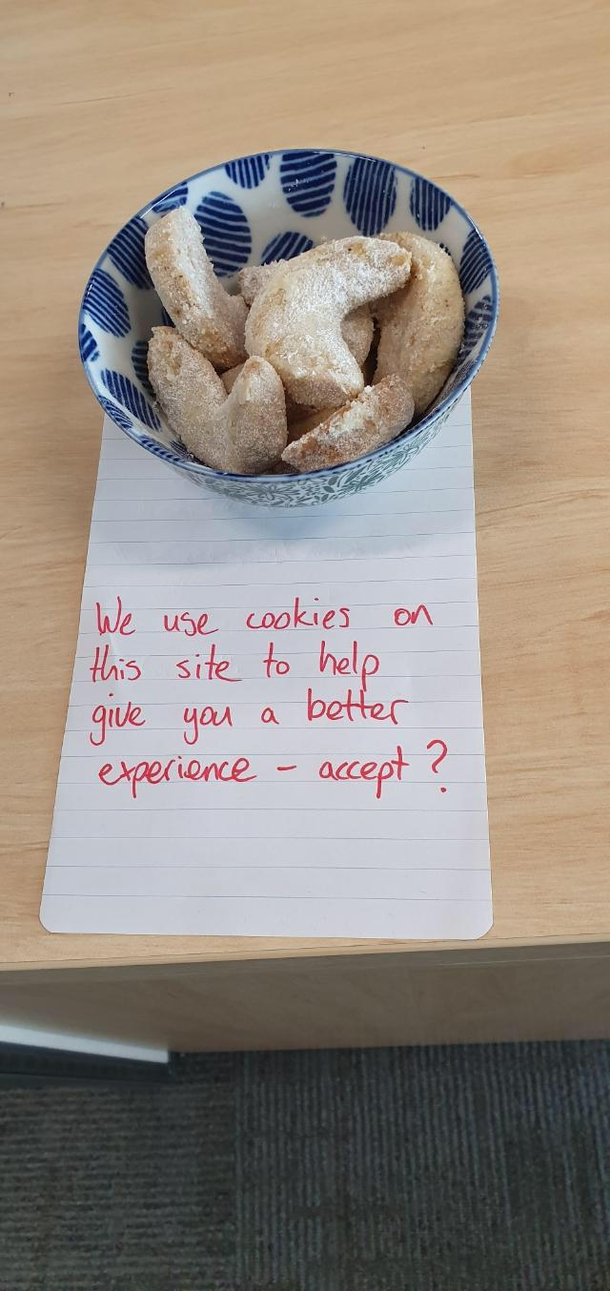 We use cookies on
this site to help
give you a better
experience - accept?